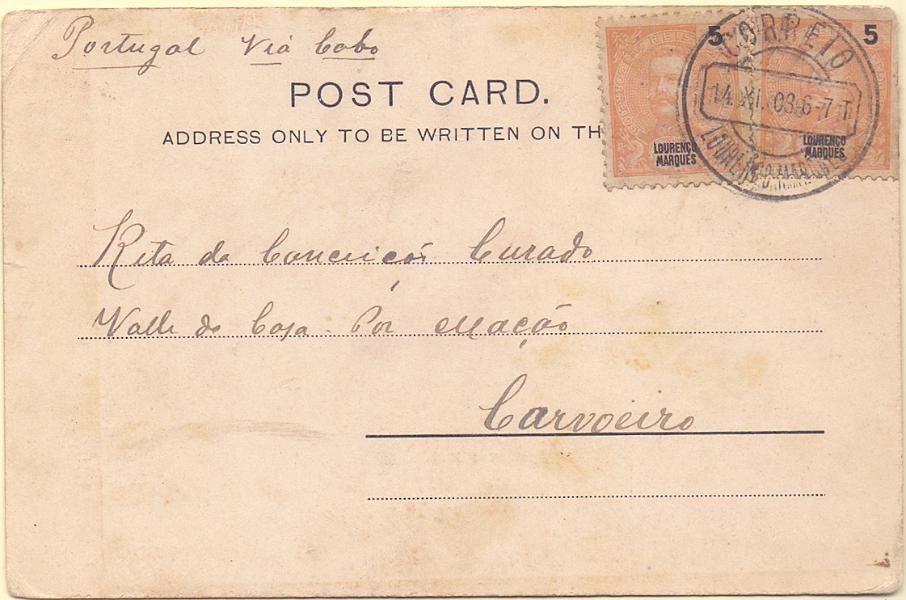 Portugal Viá Cabo
POST CARD.
ADDRESS ONLY TO BE WRITTEN ON TH
5
5
CORREIO
14. XI. 03. 6-7 T.
LOURENÇO MARQUES
LOURENÇO
MARQUES
LOURENÇO
MARQUES
Rita da Conceição Curado
Valle da Casa Por Mação
Carvoeiro